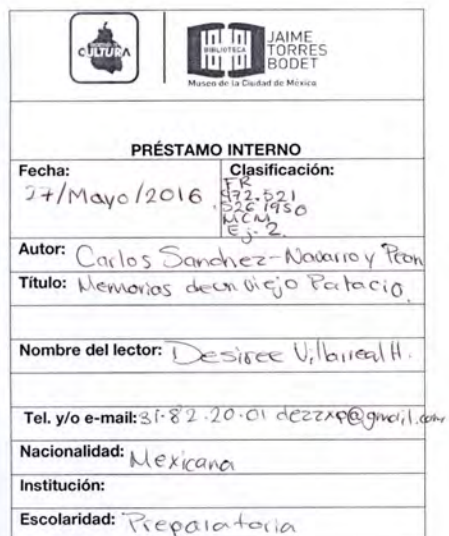 CULTURA
BIBLIOTECA
JAIME
TORRES
BODET
Museo de la Ciudad de México
PRÉSTAMO INTERNO
Fecha:
27/Mayo/2016
Clasificación:
FR
972.521
S26 1950
MCM
Ej. 2
Autor: Carlos Sanchez-Navarro y Peon
Título: Memorias de un viejo Palacio.
Nombre del lector: Desiree Villarreal H.
Tel. y/o e-mail: 31-82-20-01 dezzxp@gmail.com
Nacionalidad: Mexicana
Institución:
Escolaridad: Preparatoria